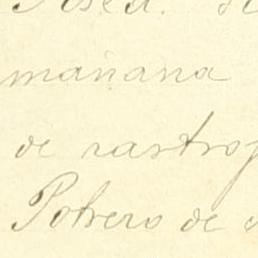 mañana
de rastroj
Potrero de